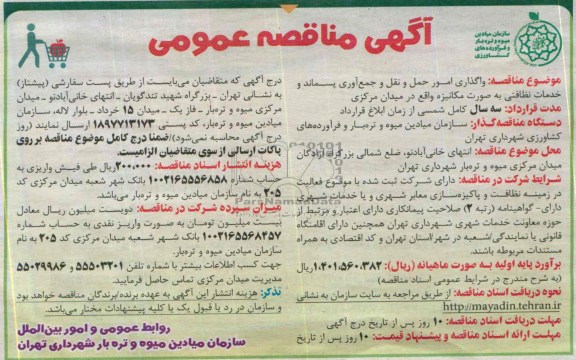 آگهی مناقصه عمومی
سازمان میادین
میوه و تره بار
و فرآورده‌های
کشاورزی
موضوع مناقصه: واگذاری امور حمل و نقل و جمع‌آوری پسماند و
خدمات نظافتی به صورت مکانیزه واقع در میدان مرکزی
مدت قرارداد: سه سال کامل شمسی از زمان ابلاغ قرارداد
دستگاه مناقصه‌گذار: سازمان میادین میوه و تره‌بار و فرآورده‌های
کشاورزی شهرداری تهران
محل موضوع مناقصه: انتهای خانی‌آبادنو، ضلع شمالی بزرگراه آزادگان
میدان مرکزی میوه و تره‌بار شهرداری تهران
شرایط شرکت در مناقصه: دارای شرکت ثبت شده با موضوع فعالیت
در زمینه نظافت و پاکیزه‌سازی معابر شهری و یا خدمات شهری
دارای- گواهینامه (رتبه ۲) صلاحیت پیمانکاری دارای اعتبار و مرتبط از
حوزه معاونت خدمات شهری شهرداری تهران همچنین دارای اقامتگاه
قانونی یا نمایندگی/شعبه در شهر/استان تهران و کد اقتصادی به همراه
مستندات مربوطه باشند.
برآورد پایه اولیه به صورت ماهیانه (ریال): ۱،۴۰۱،۵۶۰،۳۸۲ ریال
(به شرح مندرج در شرایط عمومی اسناد مناقصه)
نحوه دریافت اسناد مناقصه: از طریق مراجعه به سایت سازمان به نشانی
http://mayadin.tehran.ir
مهلت دریافت اسناد مناقصه: ۱۰ روز پس از تاریخ درج آگهی
مهلت ارائه اسناد مناقصه و پیشنهاد قیمت: ۱۰ روز پس از تاریخ
درج آگهی که متقاضیان می‌بایست از طریق پست سفارشی (پیشتاز)
به نشانی تهران - بزرگراه شهید تندگویان - انتهای خانی‌آبادنو - میدان
مرکزی میوه و تره‌بار - فاز یک - میدان ۱۵ خرداد - بلوار لاله، سازمان
میادین میوه و تره‌بار، کد پستی ۱۸۹۷۷۱۳۱۷۳ ارسال نمایند (روز
درج آگهی محاسبه نمی‌شود)/ضمنا درج کامل موضوع مناقصه بر روی
پاکات ارسالی از سوی متقاضیان الزامیست.
هزینه انتشار اسناد مناقصه: ۲۰۰،۰۰۰ ریال طی فیش واریزی به
حساب شماره ۱۰۰۲۱۶۵۵۵۶۸۵۸ بانک شهر شعبه میدان مرکزی کد
۲۰۵ به نام سازمان میادین میوه و تره‌بار می‌باشد.
میزان سپرده شرکت در مناقصه: دویست میلیون ریال معادل
بیست میلیون تومان به صورت واریز نقدی به حساب شماره
۱۰۰۲۱۶۵۵۶۸۴۵۷ بانک شهر شعبه میدان مرکزی کد ۲۰۵ به نام
سازمان میادین میوه و تره‌بار.
جهت کسب اطلاعات بیشتر با شماره تلفن ۵۵۵۰۳۲۰۱ و ۵۵۰۲۹۹۸۶
مدیریت میدان مرکزی تماس حاصل فرمایید.
تذکر: هزینه انتشار این آگهی به عهده برنده/برندگان مناقصه خواهد بود
و سازمان در رد یا قبول یک یا کلیه پیشنهادات مختار می‌باشد.
روابط عمومی و امور بین‌الملل
سازمان میادین میوه و تره بار شهرداری تهران